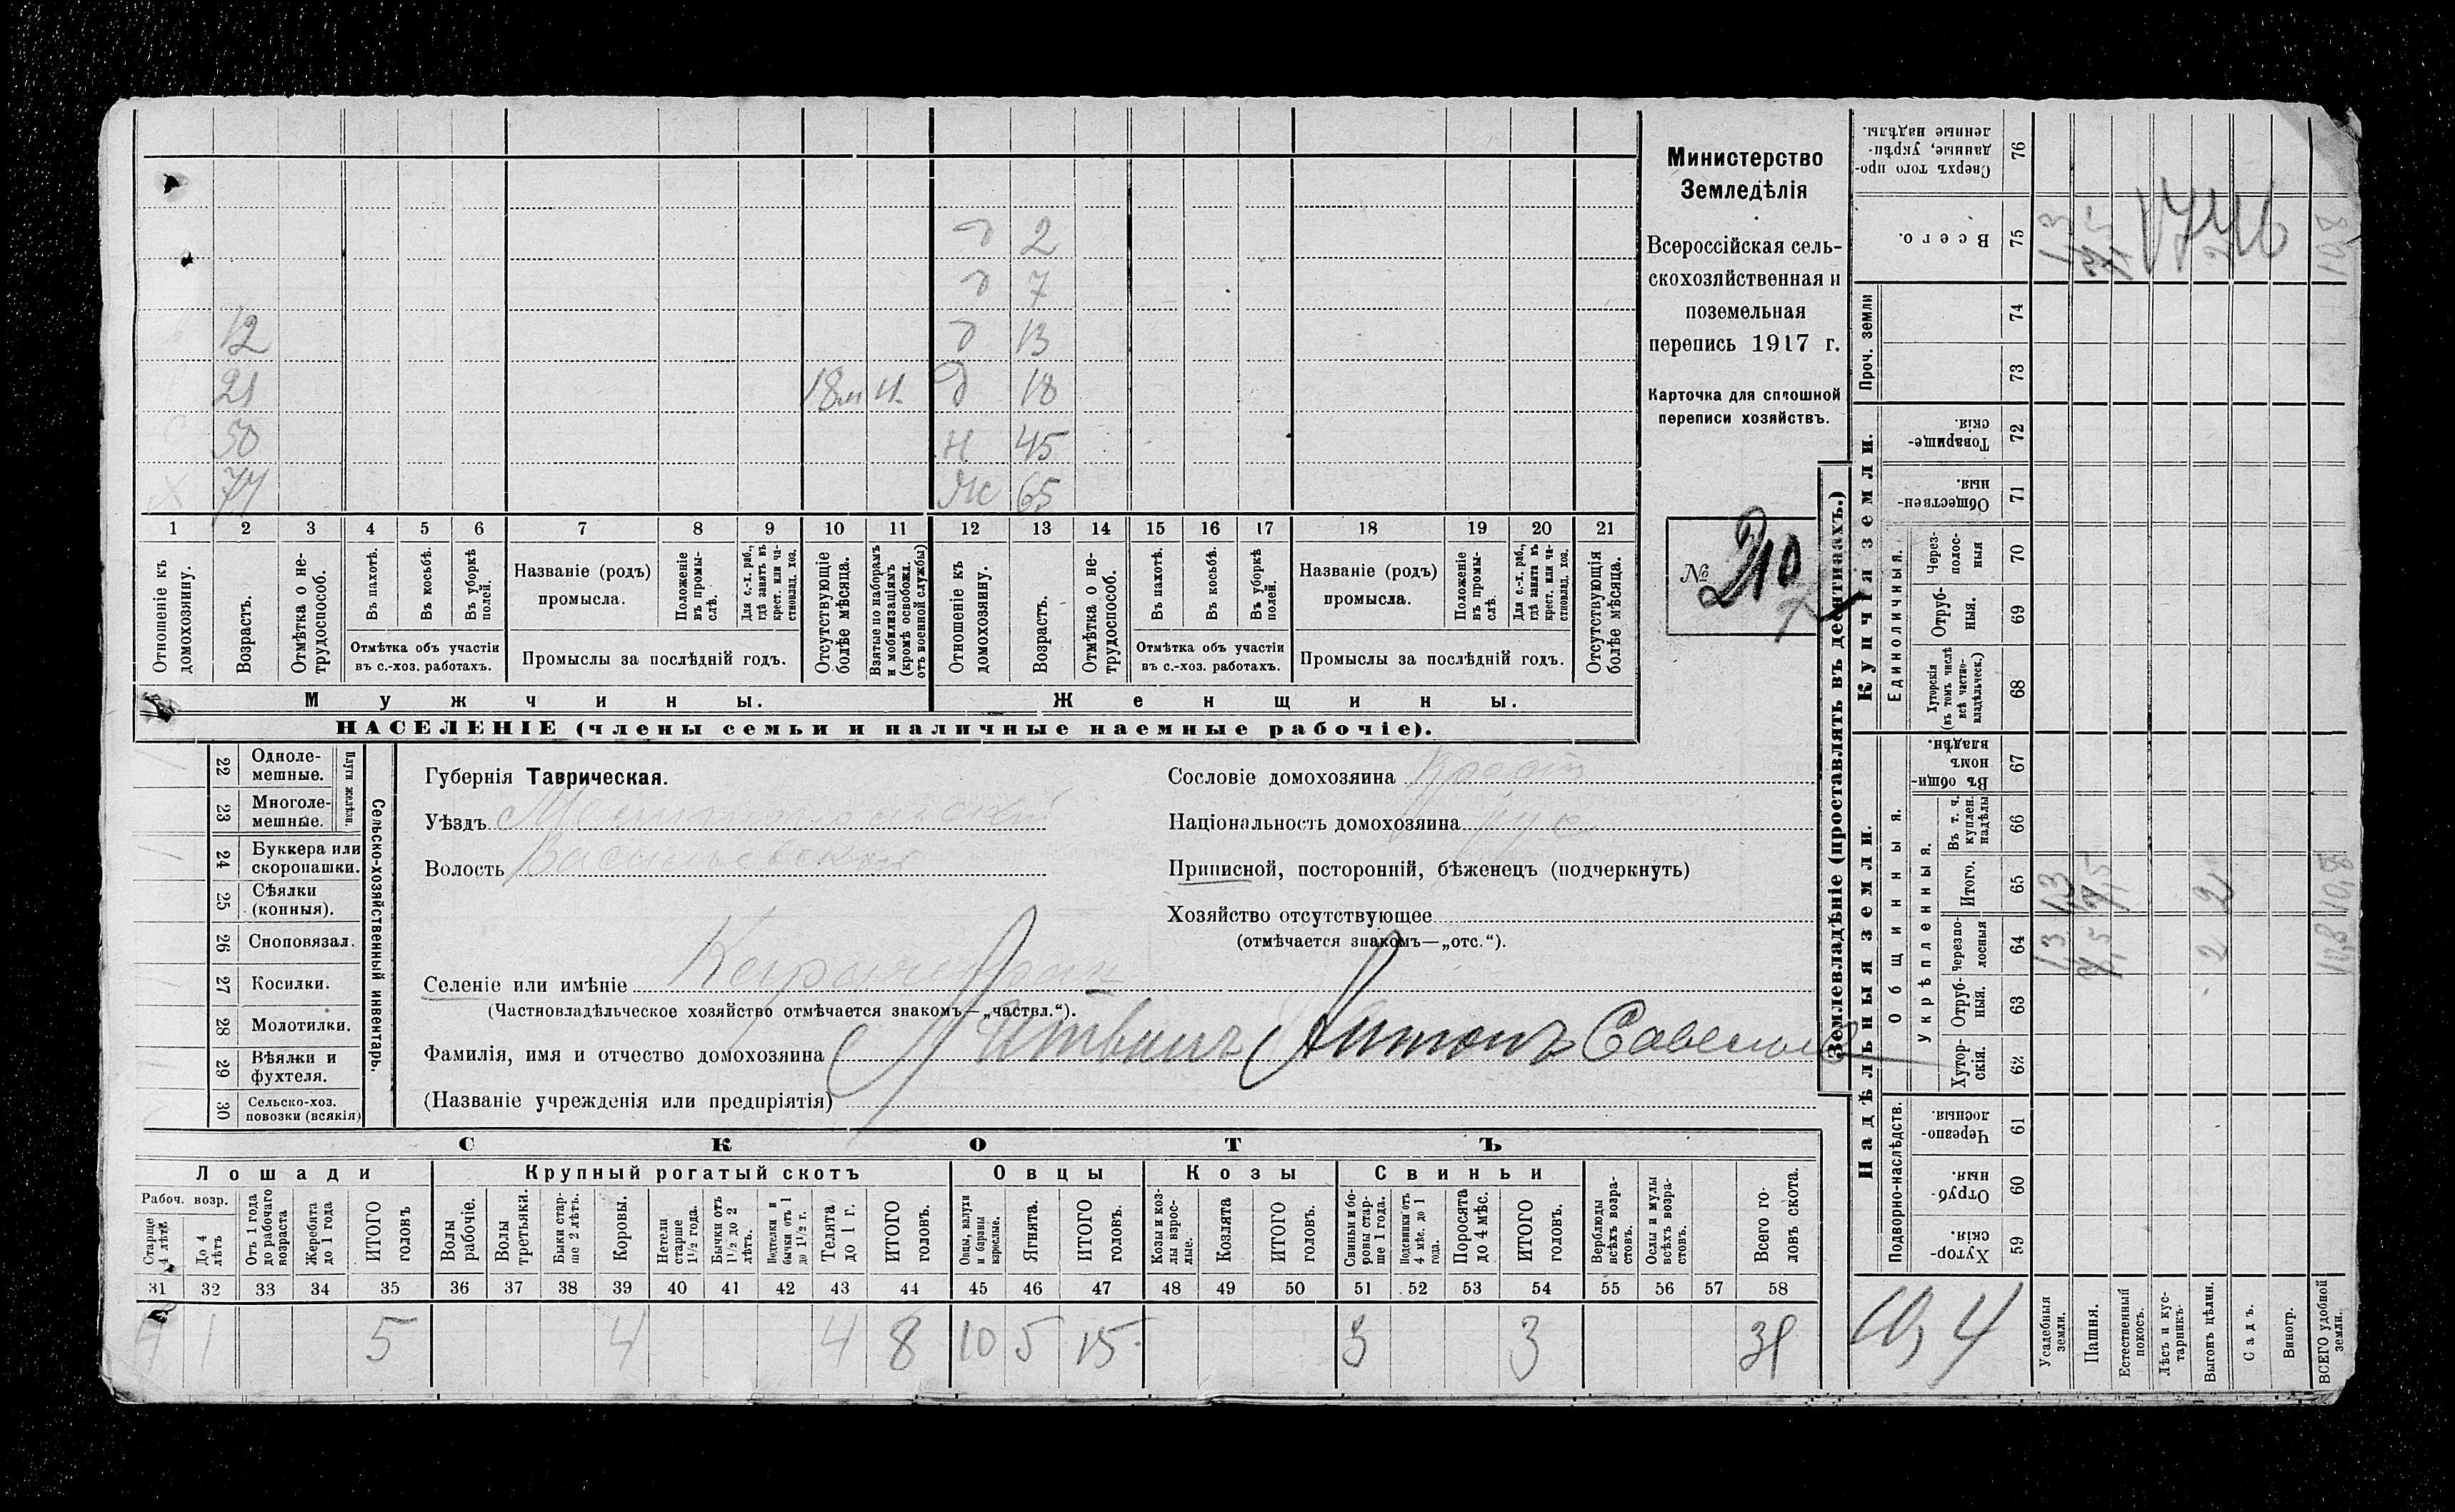 Министерство
Земледѣлія
Всероссійская сель-
скохозяйственная и
поземельная
перепись 1917 г.
Карточка для сплошной
переписи хозяйствъ.
№ 210
д 2
д 7
12 д 13
21 18 м д 18
50 н 45
Х 77 Ж 65
1 2 3 4 5 6 7 8 9 10 11 12 13 14 15 16 17 18 19 20 21
Отношеніе къ домохозяину.
Возрастъ.
Отмѣтка о не-трудоспособ.
Въ пахотѣ.
Въ косьбѣ.
Въ уборкѣ полей.
Отмѣтка объ участіи
въ с.-хоз. работахъ.
Названіе (родъ)
промысла.
Положеніе въ промы-слѣ.
Для с.-х. раб., гдѣ занятъ въ крест. или ча-стновлад. хоз.
Промыслы за послѣдній годъ.
Отсутствующіе болѣе мѣсяца.
Взятые по наборамъ и мобилизаціямъ (кромѣ освобожд. отъ военной службы)
Отношеніе къ домохозяину.
Возрастъ.
Отмѣтка о не-трудоспособ.
Въ пахотѣ.
Въ косьбѣ.
Въ уборкѣ полей.
Отмѣтка объ участіи
въ с.-хоз. работахъ.
Названіе (родъ)
промысла.
Положеніе въ промы-слѣ.
Для с.-х. раб., гдѣ занята въ крест. или ча-стновлад. хоз.
Промыслы за послѣдній годъ.
Отсутствующія болѣе мѣсяца.
Мужчины.
Женщины.
НАСЕЛЕНІЕ (члены семьи и наличные наемные рабочіе).
22 Одноле-мешные.
23 Многоле-мешные.
Плуги желѣзн.
24 Буккера или скоропашки.
25 Сѣялки (конныя).
26 Сноповязал.
27 Косилки.
28 Молотилки.
29 Вѣялки и фухтеля.
30 Сельско-хоз. повозки (всякія)
Сельско-хозяйственный инвентарь.
Губернія Таврическая.
Уѣздъ Мелитопольскій
Волость Васильевская
Селеніе или имѣніе
(Частновладѣльческое хозяйство отмѣчается знакомъ—„частвл.“).
Фамилія, имя и отчество домохозяина Литвинъ Антонъ
(Названіе учрежденія или предпріятія)
Сословіе домохозяина Крест
Національность домохозяина рус
Приписной, посторонній, бѣженецъ (подчеркнуть)
Хозяйство отсутствующее
(отмѣчается знакомъ—„отс.“).
СКОТЪ
Лошади Крупный рогатый скотъ Овцы Козы Свиньи
Рабоч. возр.
Старше 4 лѣтъ
До 4 лѣтъ
Отъ 1 года до рабочаго возраста
Жеребята до 1 года
ИТОГО головъ
Волы рабочіе.
Волы третьяки.
Быки стар-ше 2 лѣтъ.
Коровы.
Нетели старше 1½ года.
Бычки отъ 1½ до 2 лѣтъ.
Подтелки и бычки отъ 1 до 1½ г.
Телята до 1 г.
ИТОГО головъ.
Овцы, валухи и бараны взрослые.
Ягнята.
ИТОГО головъ.
Козы и коз-лы взрос-лые.
Козлята
ИТОГО головъ.
Свиньи и бо-ровы стар-ше 1 года.
Подсвинки отъ 4 мѣс. до 1 года.
Поросята до 4 мѣс.
ИТОГО головъ.
Верблюды всѣхъ возра-стовъ.
Ослы и мулы всѣхъ возра-стовъ.
Всего го-ловъ скота.
31 32 33 34 35 36 37 38 39 40 41 42 43 44 45 46 47 48 49 50 51 52 53 54 55 56 57 58
4 1 5 4 4 8 10 5 15 3 3 31
Землевладѣніе (проставлять въ десятинахъ.)
Купчія земли.
Надѣльныя земли.
Проч. земли
Единоличныя.
Общинныя.
Укрѣпленныя.
Подворно-наслѣдств.
Сверхъ того про-данные, укрѣп-ленные надѣлы. 76
Всего. 75
74
73
Товарище-скія. 72
Обществен-ныя. 71
Через-полос-ныя 70
Отруб-ныя. 69
Хуторскія (въ томъ числѣ всѣ частно-владѣльческ.) 68
Въ общи-номъ владѣн. 67
Въ т. ч. куплен. надѣлы 66
Итого. 65
Черезпо-лосныя 64
Отруб-ныя. 63
Хутор-скія. 62
Черезпо-лосныя. 61
Отруб-ныя. 60
Хутор-скія. 59
1746
10,4
Усадебныя земли.
Пашня.
Естественный покосъ.
Лѣсъ и кус-тарникъ.
Выгонъ цѣлин.
Садъ.
Виногр.
ВСЕГО удобной земли.
1,3 7,5 2 10,8